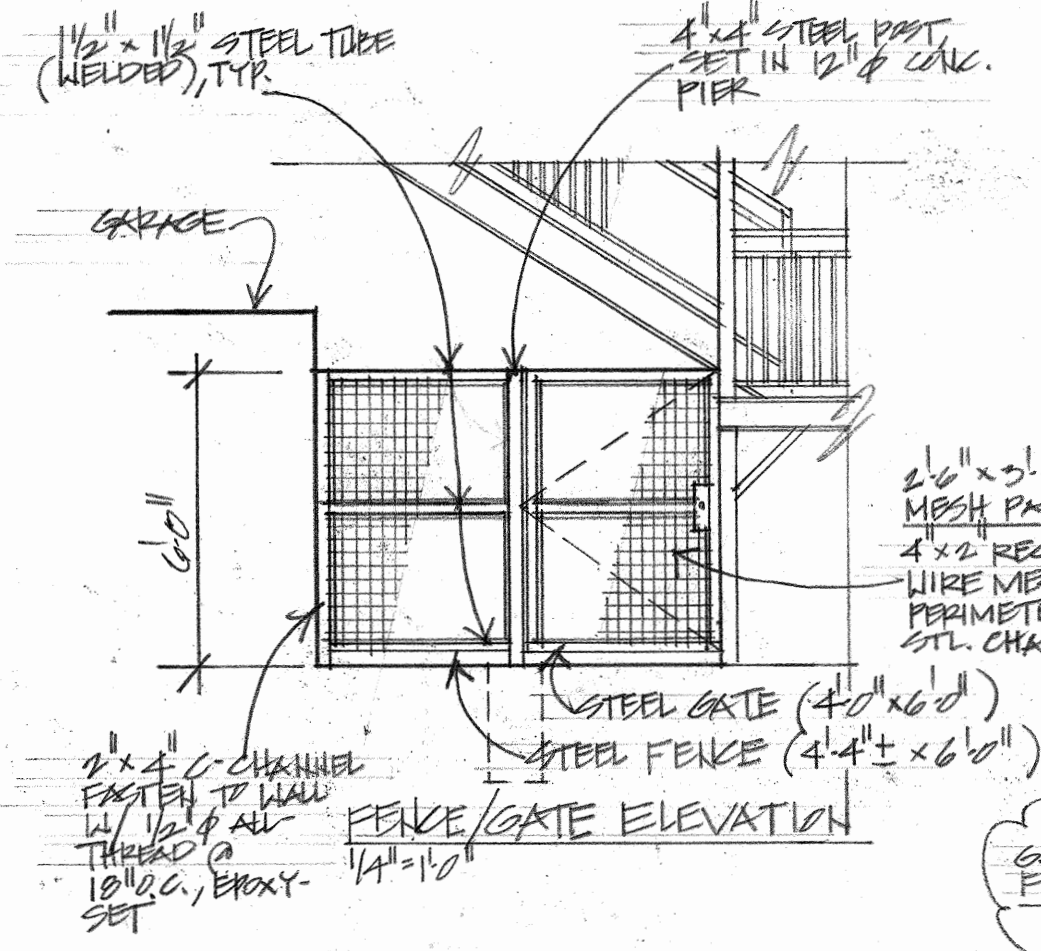 1½" x 1½" STEEL TUBE
(WELDED), TYP.
4"x4" STEEL POST,
SET IN 12"φ CONC.
PIER
GARAGE
6'-0"
2'-6" x 3'-
MESH PA
4"x2" REC
WIRE ME
PERIMET
STL. CHA
STEEL GATE (4'-0"x6'-0")
STEEL FENCE (4'-4"± x 6'-0")
2"x4" C-CHANNEL
FASTEN TO WALL
W/ 1/2"φ ALL-
THREAD @
18" O.C., EPOXY-
SET
FENCE/GATE ELEVATION
1/4"=1'-0"